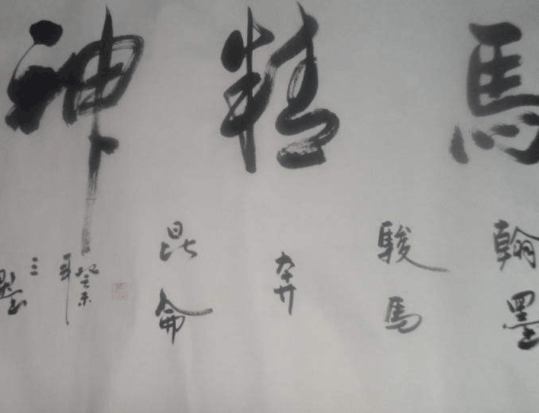 馬精神
翰墨
駿馬
奔
昆侖